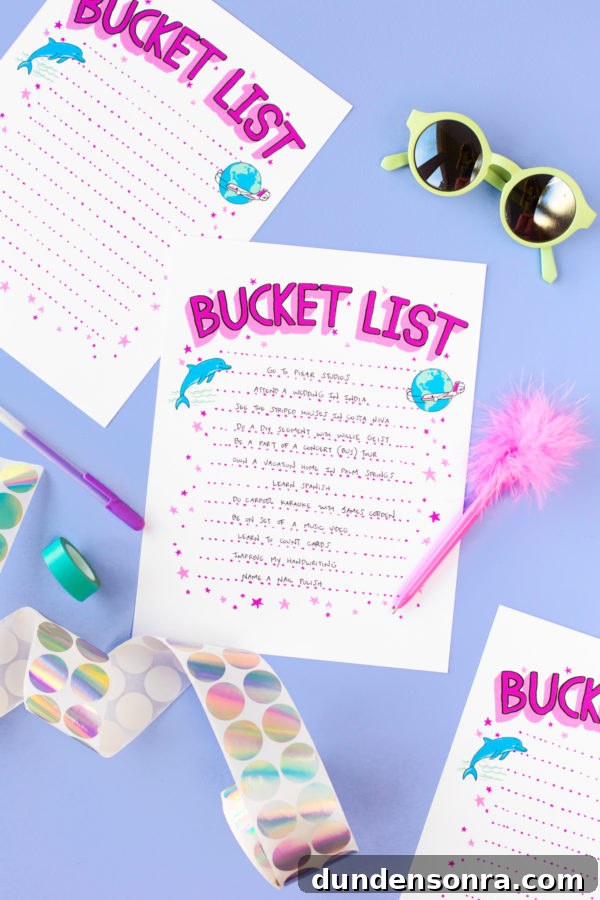 BUCKET LIST
BUCKET LIST
GO TO PIXAR STUDIOS
ATTEND A WEDDING IN INDIA
SEE THE STRIPED HOUSES IN COSTA NOVA
DO A DIY SEGMENT WITH WILLIE GEIST
BE A PART OF A CONCERT (BUS) TOUR
OWN A VACATION HOME IN PALM SPRINGS
LEARN SPANISH
DO CARPOOL KARAOKE WITH JAMES CORDEN
BE ON SET OF A MUSIC VIDEO
LEARN TO COUNT CARDS
IMPROVE MY HANDWRITING
NAME A NAIL POLISH
BUCK
dundensonra.com